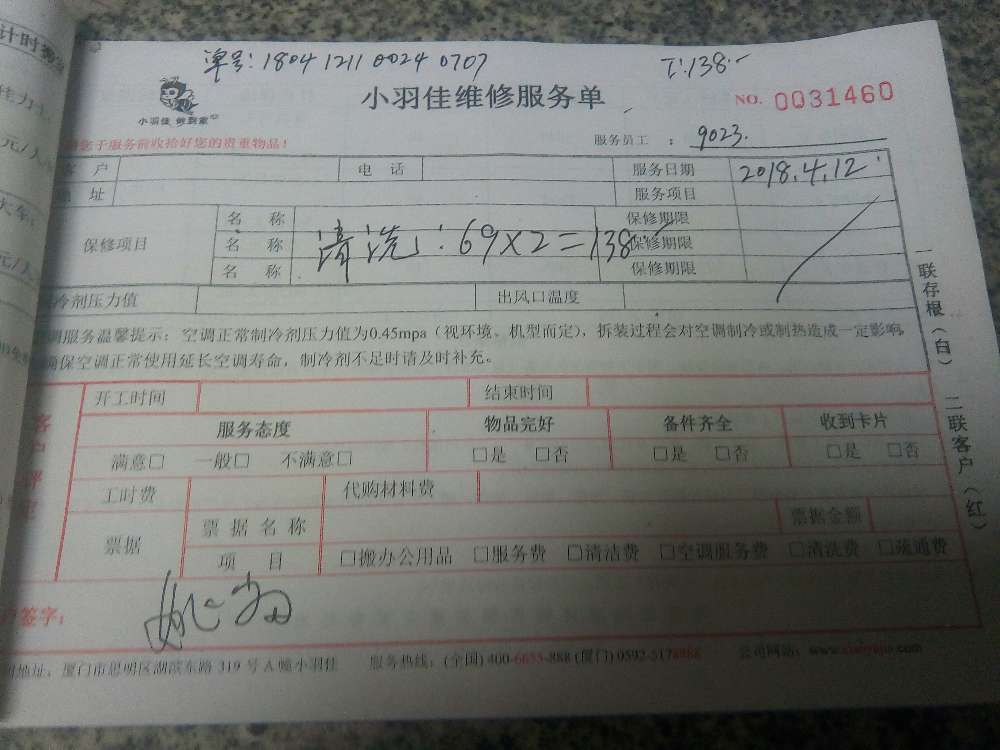 单号: 1804 1211 0024 0707
T:138.-
小羽佳维修服务单
NO. 0031460
小羽佳
于服务前收拾好您的贵重物品!
服务员工 : 9023.
户 电话 服务日期 2018.4.12
址 服务项目
保修项目 名称 保修期限
名称 清洗: 69×2=138 保修期限
名称 保修期限
冷剂压力值 出风口温度
服务温馨提示: 空调正常制冷剂压力值为0.45mpa(视环境、机型而定),拆装过程会对空调制冷或制热造成一定影响,
确保空调正常使用延长空调寿命,制冷剂不足时请及时补充。
开工时间 结束时间
服务态度 物品完好 备件齐全 收到卡片
满意□ 一般□ 不满意□ □是 □否 □是 □否 □是 □否
工时费 代购材料费
票据 票据名称 票据金额
项目 □搬办公用品 □服务费 □清洁费 □空调服务费 □清洗费 □疏通费
签字:
地址: 厦门市思明区湖滨东路 319 号 A 幢小羽佳 服务热线: (全国) 400-6655-888 (厦门) 0592-5178888 公司网站:
一联存根(白) 二联客户(红)
计时